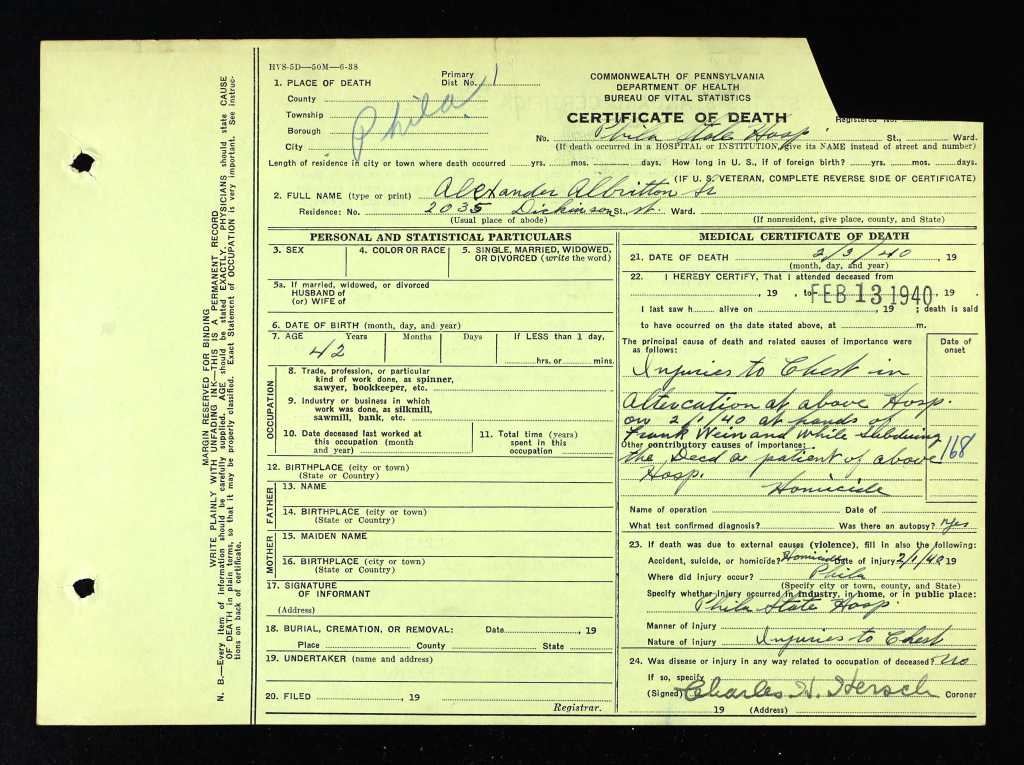 HVS-5D—50M—6-38
1. PLACE OF DEATH
Primary Dist No. 1
County
Township
Borough
City
Phila
COMMONWEALTH OF PENNSYLVANIA
DEPARTMENT OF HEALTH
BUREAU OF VITAL STATISTICS
CERTIFICATE OF DEATH
Registered No.
No. Phila State Hosp. St., Ward.
(If death occurred in a HOSPITAL or INSTITUTION, give its NAME instead of street and number)
Length of residence in city or town where death occurred yrs. mos. days. How long in U. S., if of foreign birth? yrs. mos. days.
(IF U. S. VETERAN, COMPLETE REVERSE SIDE OF CERTIFICATE)
2. FULL NAME (type or print) Alexander Albritton Sr
Residence: No. 2035 Dickinson St., st. Ward.
(Usual place of abode)
(If nonresident, give place, county, and State)
PERSONAL AND STATISTICAL PARTICULARS
3. SEX
4. COLOR OR RACE
5. SINGLE, MARRIED, WIDOWED, OR DIVORCED (write the word)
5a. If married, widowed, or divorced
HUSBAND of
(or) WIFE of
6. DATE OF BIRTH (month, day, and year)
7. AGE Years Months Days If LESS than 1 day,
42
hrs. or mins.
OCCUPATION
8. Trade, profession, or particular
kind of work done, as spinner,
sawyer, bookkeeper, etc.
9. Industry or business in which
work was done, as silkmill,
sawmill, bank, etc.
10. Date deceased last worked at
this occupation (month
and year)
11. Total time (years)
spent in this
occupation
12. BIRTHPLACE (city or town)
(State or Country)
FATHER
13. NAME
14. BIRTHPLACE (city or town)
(State or Country)
MOTHER
15. MAIDEN NAME
16. BIRTHPLACE (city or town)
(State or Country)
17. SIGNATURE
OF INFORMANT
(Address)
18. BURIAL, CREMATION, OR REMOVAL: Date , 19
Place County State
19. UNDERTAKER (name and address)
20. FILED , 19
Registrar.
MEDICAL CERTIFICATE OF DEATH
21. DATE OF DEATH 2/3/40 , 19
(month, day, and year)
22. I HEREBY CERTIFY, That I attended deceased from
, 19 , to , 19 .
FEB 13 1940
I last saw h alive on , 19 ; death is said
to have occurred on the date stated above, at m.
The principal cause of death and related causes of importance were
as follows:
Date of
onset
Injuries to Chest in
altercation at above Hosp.
on 2/1/40 at hands of
Frank Wein and while subduing
Other contributory causes of importance:
the Decd a patient of above
168
Hosp.
Homicide
Name of operation Date of
What test confirmed diagnosis? Was there an autopsy? Yes
23. If death was due to external causes (violence), fill in also the following:
Accident, suicide, or homicide? Homicide Date of injury 2/1/40 19
Where did injury occur? Phila
(Specify city or town, county, and State)
Specify whether injury occurred in industry, in home, or in public place:
Phila State Hosp.
Manner of injury
Nature of injury Injuries to Chest
24. Was disease or injury in any way related to occupation of deceased? no
If so, specify
(Signed) Charles H. Hersch Coroner
19 (Address)
MARGIN RESERVED FOR BINDING
WRITE PLAINLY WITH UNFADING INK—THIS IS A PERMANENT RECORD
N. B.—Every item of information should be carefully supplied. AGE should be stated EXACTLY. PHYSICIANS should state CAUSE
OF DEATH in plain terms, so that it may be properly classified. Exact Statement of OCCUPATION is very important. See instruc-
tions on back of certificate.